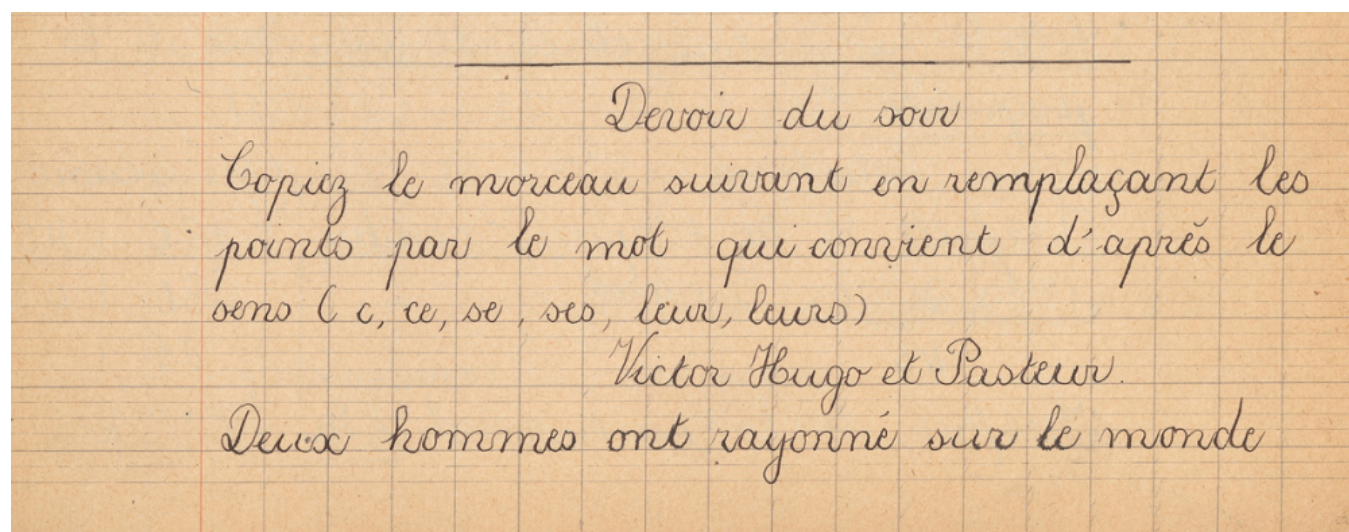 Devoir du soir
Copiez le morceau suivant en remplaçant les
points par le mot qui convient d'après le
sens ( c, ce, se, ses, leur, leurs)
Victor Hugo et Pasteur.
Deux hommes ont rayonné sur le monde